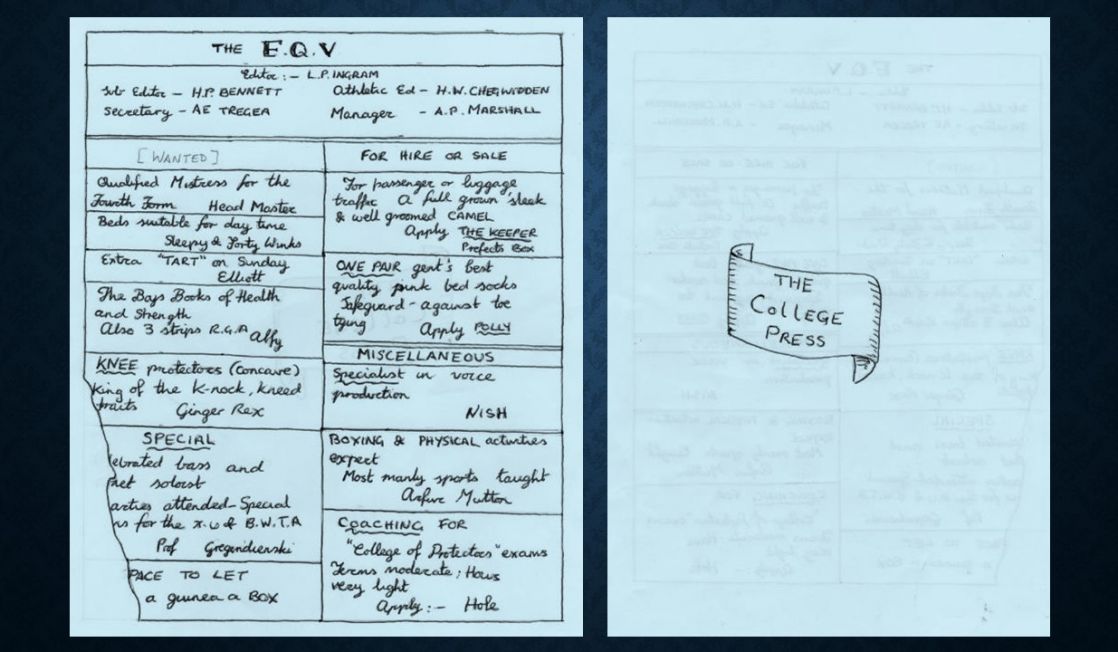 THE E.Q.V
Editor :- L.P. INGRAM
Sub Editor - H.P. BENNETT
Athletic Ed - H.W. CHEGWIDDEN
secretary - AE TREGEA
Manager - A.P. MARSHALL
[WANTED]
Qualified Mistress for the
Fourth Form Head Master
Beds suitable for day time
Sleepy & Forty Winks
Extra "TART" on Sunday
Elliott
The Boys Books of Health
and Strength
Also 3 strips R.G.A Alfy
KNEE protectors (concave)
King of the K-nock, kneed
traits Ginger Rex
SPECIAL
lebrated bass and
net soloist
arties attended - Special
ns for the x.u & B.W.T.A
Prof Gregendienski
PACE TO LET
a guinea a BOX
FOR HIRE OR SALE
For passenger or luggage
traffic A full grown sleek
& well groomed CAMEL
Apply THE KEEPER
Prefects Box
ONE PAIR gent's best
quality pink bed socks
Safeguard - against toe
tying Apply POLLY
MISCELLANEOUS
Specialist in voice
production
NISH
BOXING & PHYSICAL activities
expert
Most manly sports taught
Arfur Mutton
COACHING FOR
"College of Protectors" exams
Terms moderate; Hours
very light
Apply :- Hole
THE
COLLEGE
PRESS